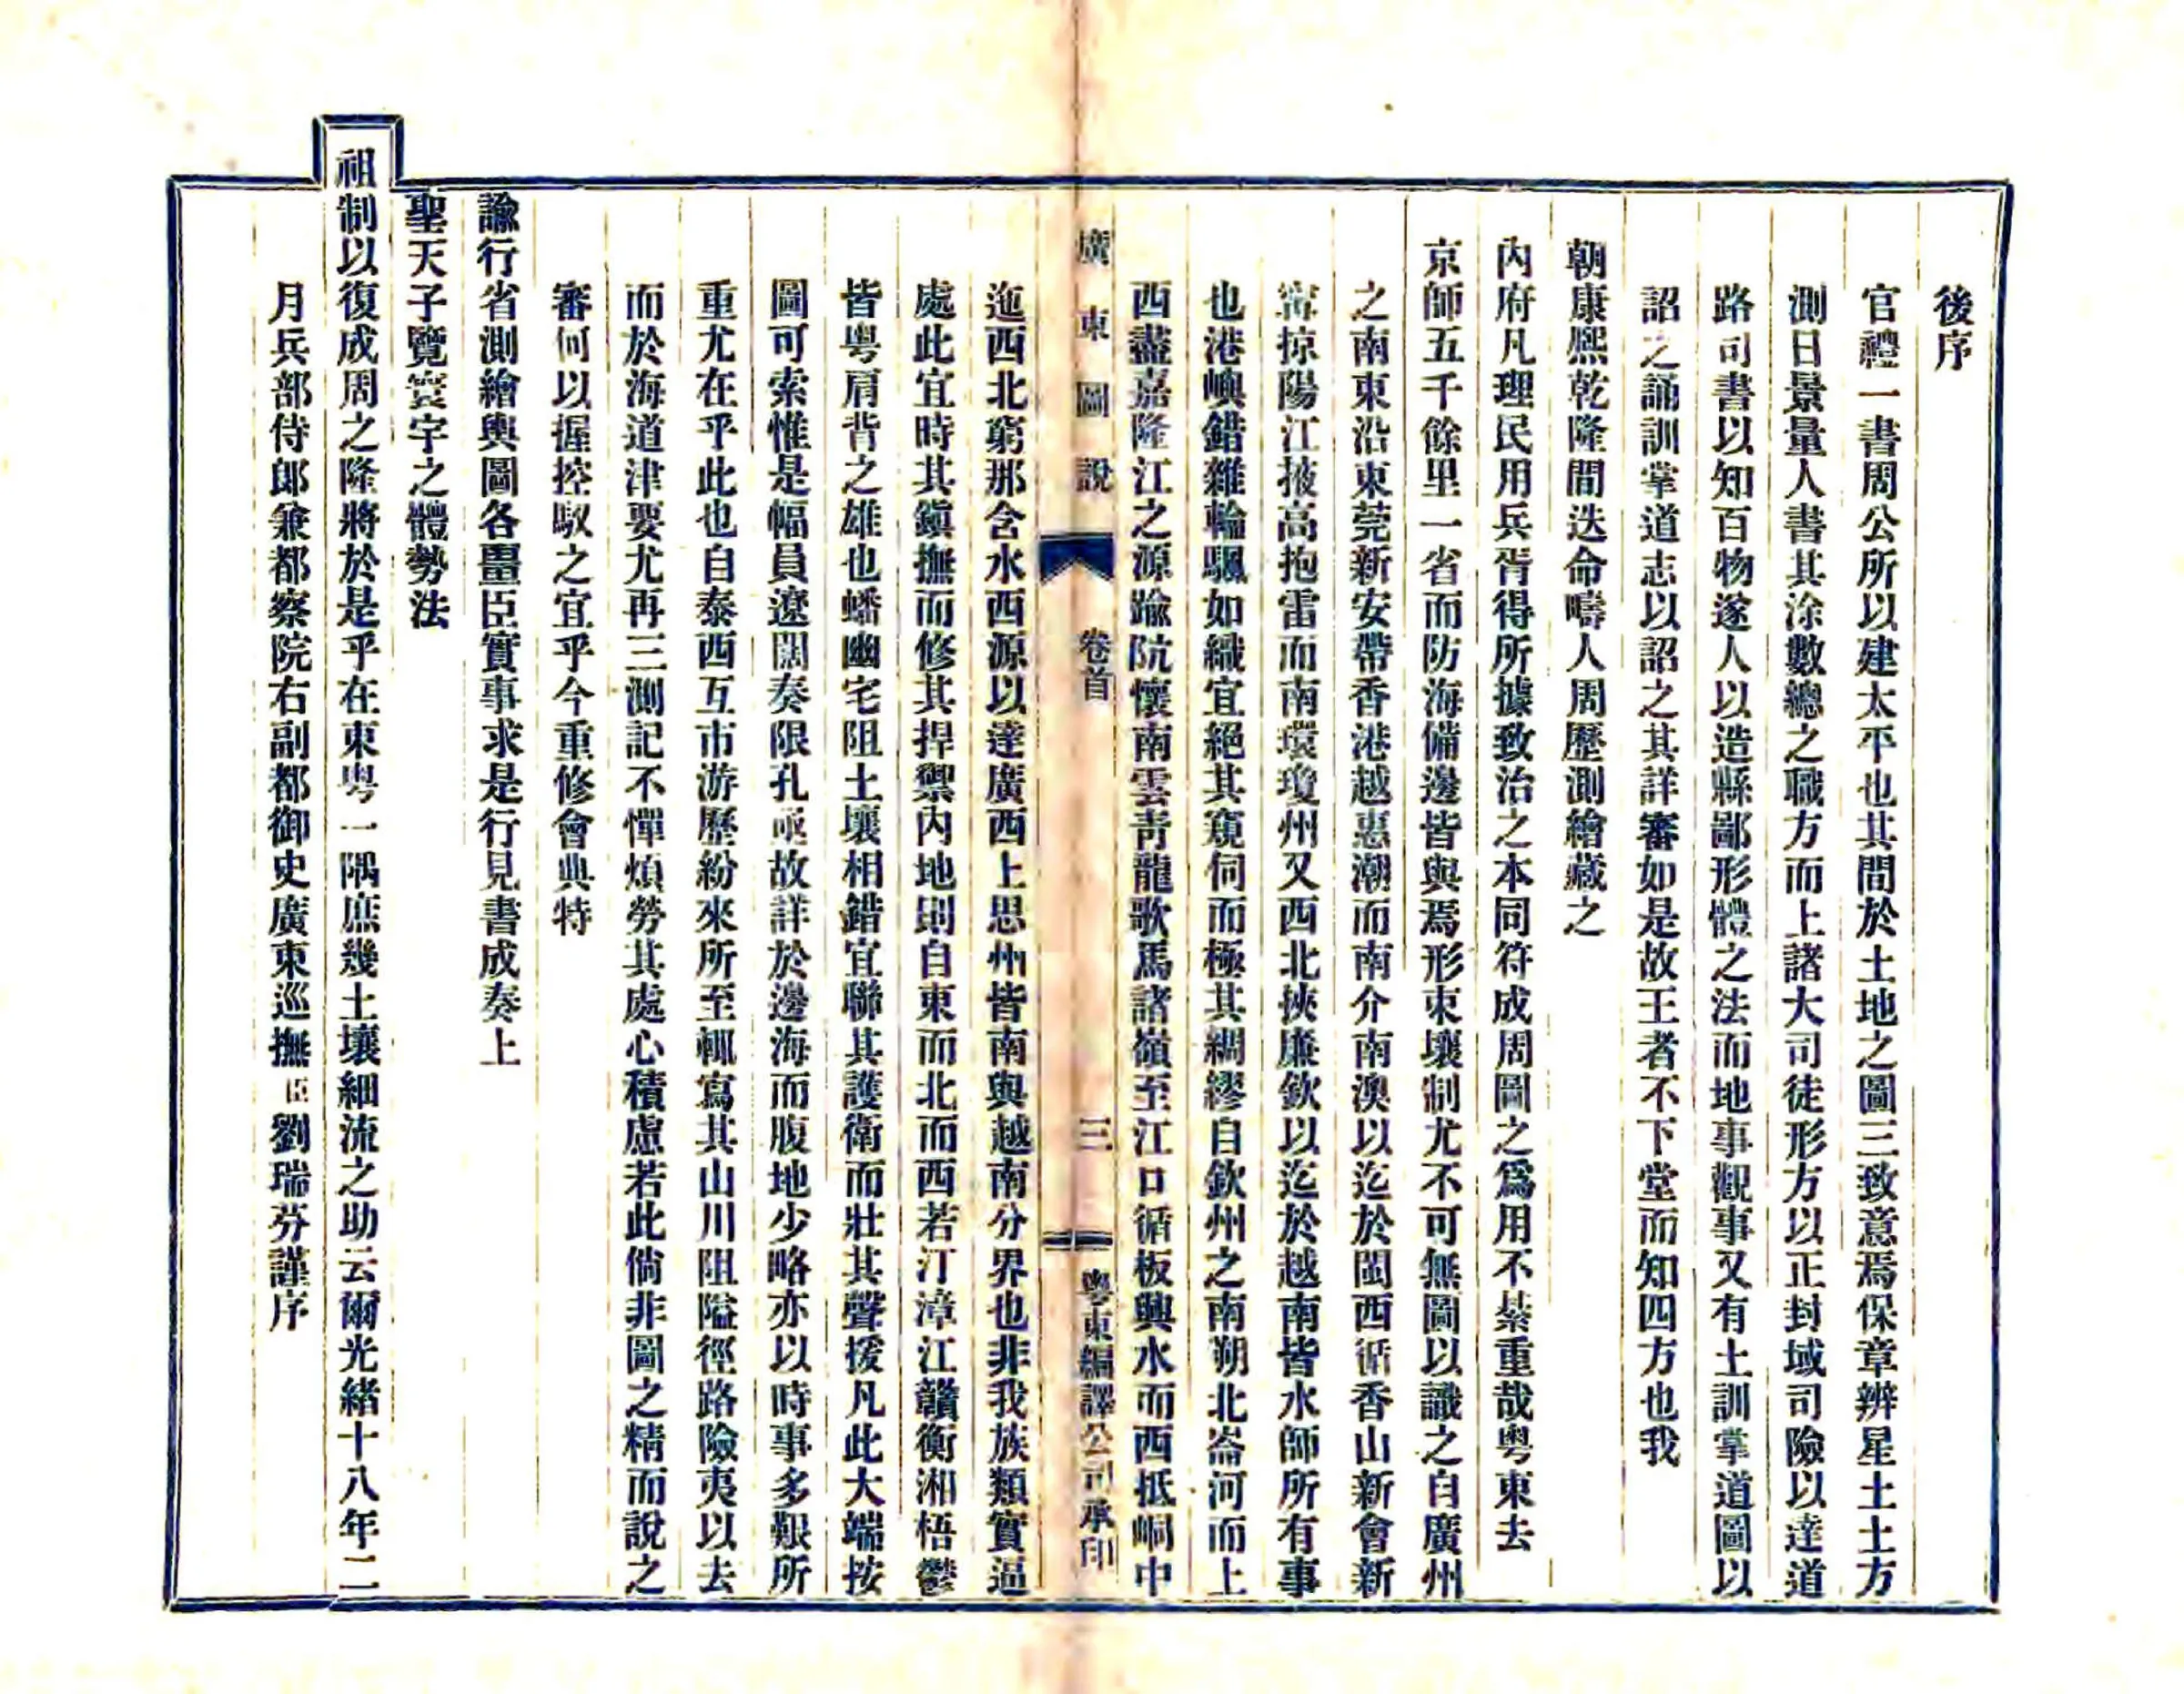 後序
官禮一書周公所以建太平也其間於土地之圖三致意焉保章辨星土土方
測日景量人書其涂數總之職方而上諸大司徒形方以正封域司險以達道
路司書以知百物遂人以造縣鄙形體之法而地事觀事又有土訓掌道圖以
詔之誦訓掌道志以詔之其詳審如是故王者不下堂而知四方也我
朝康熙乾隆間迭命疇人周歷測繪藏之
內府凡理民用兵胥得所據致治之本同符成周圖之爲用不綦重哉粵東去
京師五千餘里一省而防海備邊皆與焉形束壤制尤不可無圖以識之自廣州
之南東沿東莞新安帶香港越惠潮而南介南澳以迄於閩西循香山新會新
甯掠陽江掖高抱雷而南環瓊州又西北挾廉欽以迄於越南皆水師所有事
也港嶼錯雜輪颿如織宜絕其窺伺而極其綢繆自欽州之南朔北崙河而上
西盡嘉隆江之源踰阬懷南雲靑龍歌馬諸嶺至江口循板興水而西抵峒中
廣東圖說 卷首 三 粵東編譯公司承印
迤西北窮那含水西源以達廣西上思州皆南與越南分界也非我族類實逼
處此宜時其鎭撫而修其捍禦內地則自東而北而西若汀漳江贛衡湘梧鬱
皆粵肩背之雄也蟠幽宅阻土壤相錯宜聯其護衛而壯其聲援凡此大端按
圖可索惟是幅員遼闊奏限孔亟故詳於邊海而腹地少略亦以時事多艱所
重尤在乎此也自泰西互市游歷紛來所至輒寫其山川阻隘徑路險夷以去
而於海道津要尤再三測記不憚煩勞其處心積慮若此倘非圖之精而說之
審何以握控馭之宜乎今重修會典特
諭行省測繪輿圖各畺臣實事求是行見書成奏上
聖天子覽寰宇之體勢法
祖制以復成周之隆將於是乎在東粵一隅庶幾土壤細流之助云爾光緒十八年二
月兵部侍郎兼都察院右副都御史廣東巡撫臣劉瑞芬謹序